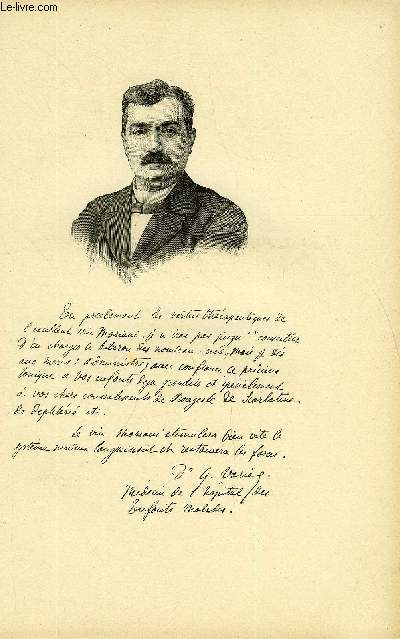 Le-livre.com
En proclamant les vertus thérapeutiques de
l'excellent vin Mariani, je n'irai pas jusqu'à conseiller
d'en charger le biberon des nouveau-nés, mais je dis
aux mères : administrez avec confiance ce précieux
tonique à vos enfants déjà grandis et spécialement
à vos chers convalescents de Rougeole de Scarlatine
de diphtérie etc.
Le vin Mariani stimulera bien vite le
système nerveux languissant et restaurera les forces.
Dr G. Variot
Médecin de l'hôpital des
Enfants Malades.